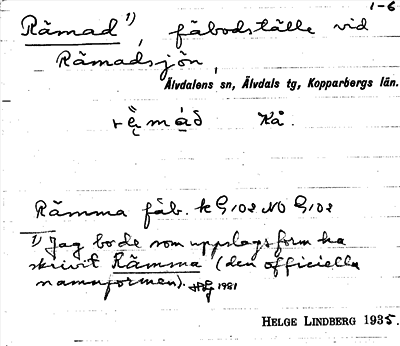 1-6
Rämad 1), fäbodställe vid
Rämadsjön,
Älvdalens sn, Älvdals tg, Kopparbergs län.
Kå.
Rämma fäb. k G102 NO G102
1) Jag borde som uppslagsform ha
skrivit Rämma (den officiella
namnformen). 1981
HELGE LINDBERG 1935.